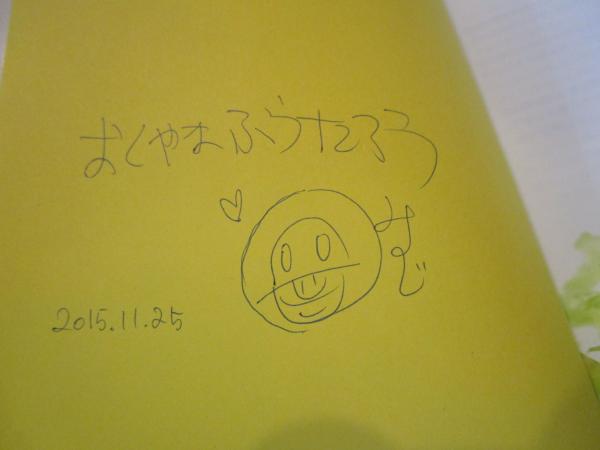 おくやまふうたろう
みどし
2015.11.25